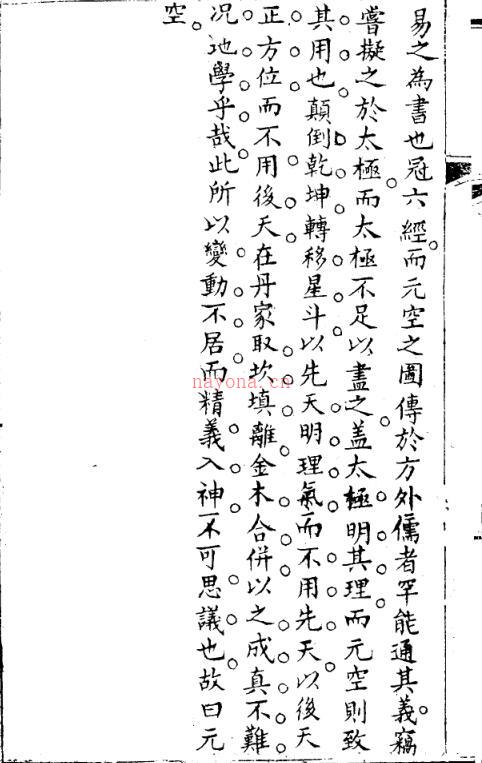 易之為書也冠六經而元空之圖傳於方外儒者罕能通其義竊
嘗擬之於太極而太極不足以盡之盖太極明其理而元空則致
其用也顛倒乾坤轉移星斗以先天明理氣而不用先天以後天
正方位而不用後天在丹家取坎填離金木合併以之成真不難
况地學乎哉此所以變動不居而精義入神不可思議也故曰元
空
nayona.cn